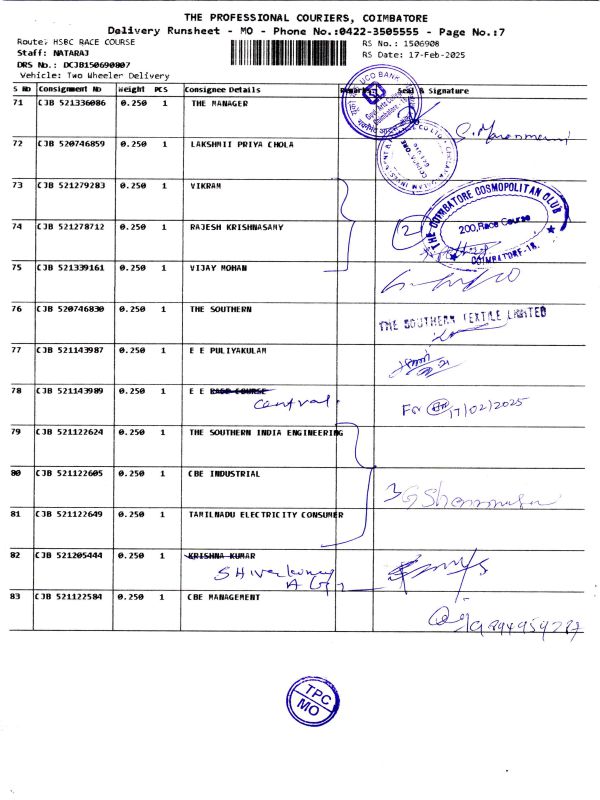 THE PROFESSIONAL COURIERS, COIMBATORE
Delivery Runsheet - MO - Phone No.:0422-3505555 - Page No.:7
Route: HSBC RACE COURSE
RS No.: 1506908
Staff: NATARAJ
RS Date: 17-Feb-2025
DRS No.: DCJB150690807
Vehicle: Two Wheeler Delivery
S No Consignment No Weight PCS Consignee Details Remarks Seal & Signature
71 CJB 521336086 0.250 1 THE MANAGER
UCO BANK
Govt. Arts College
Coimbatore - 18
72 CJB 520746859 0.250 1 LAKSHMII PRIYA CHOLA
73 CJB 521279283 0.250 1 VIKRAM
THE COIMBATORE COSMOPOLITAN CLUB
200, Race Course
COIMBATORE-18.
74 CJB 521278712 0.250 1 RAJESH KRISHNASAMY
2
75 CJB 521339161 0.250 1 VIJAY MOHAN
76 CJB 520746830 0.250 1 THE SOUTHERN
THE SOUTHERN TEXTILE LIMITED
77 CJB 521143987 0.250 1 E E PULIYAKULAM
78 CJB 521143989 0.250 1 E E RACE COURSE
Central.
For 17/02/2025
79 CJB 521122624 0.250 1 THE SOUTHERN INDIA ENGINEERING
80 CJB 521122605 0.250 1 CBE INDUSTRIAL
3
81 CJB 521122649 0.250 1 TAMILNADU ELECTRICITY CONSUMER
82 CJB 521205444 0.250 1 KRISHNA KUMAR
83 CJB 521122584 0.250 1 CBE MANAGEMENT
TPC
MO